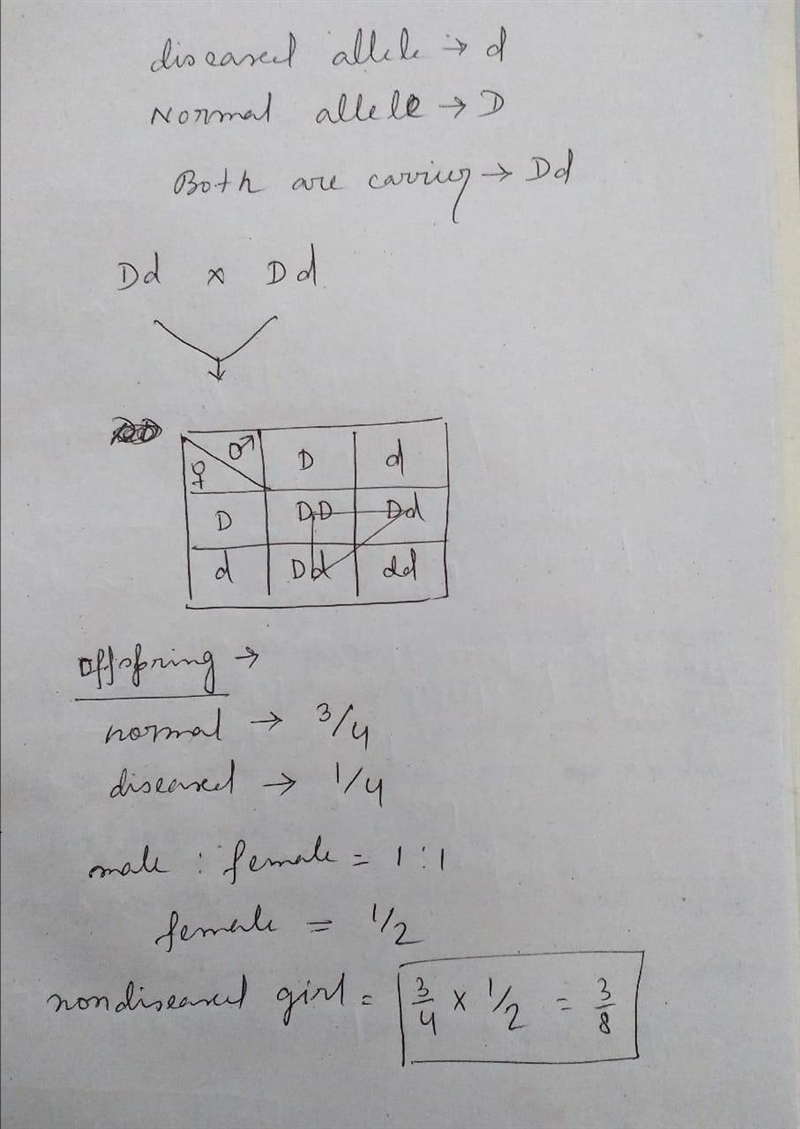 diseased allele → d
Normal allele → D
Both are carrier → Dd
Dd x Dd
♀ ♂ D d
D DD Dd
d Dd dd
offspring →
normal → 3/4
diseased → 1/4
male : female = 1 : 1
female = 1/2
nondiseased girl = 3/4 x 1/2 = 3/8